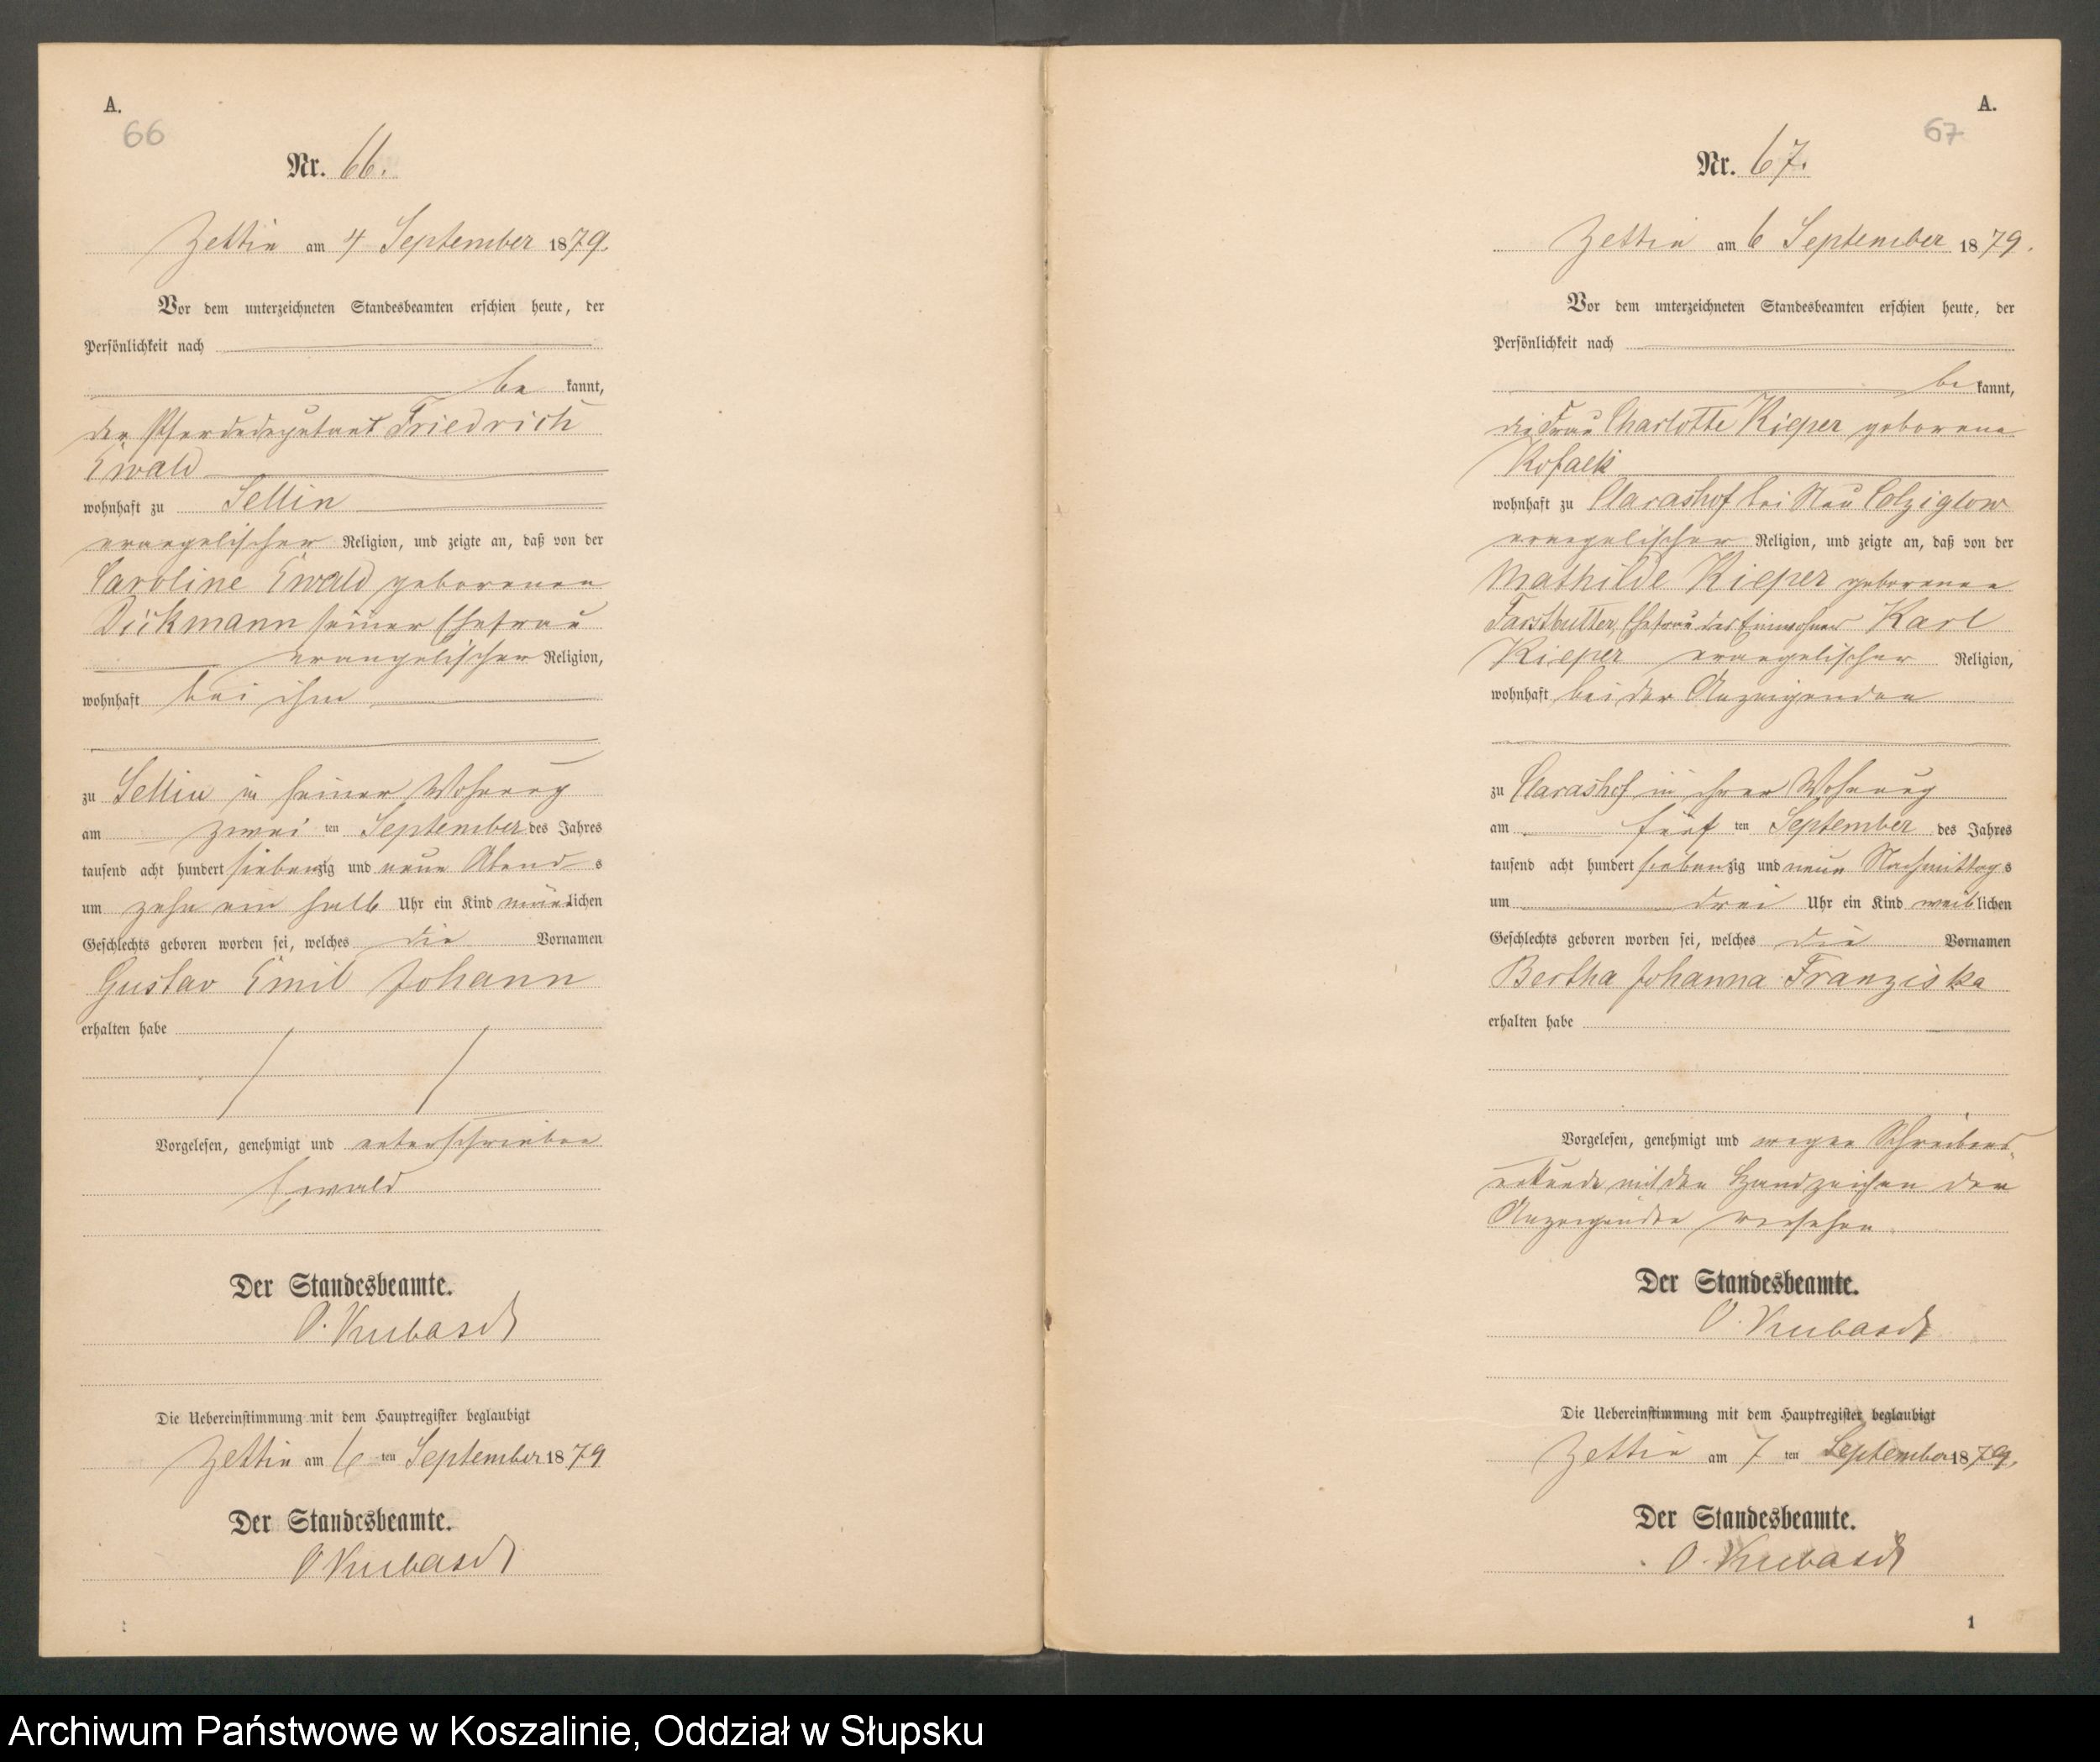 A.
66
Nr. 66.
Zettin am 4 September 1879.
Vor dem unterzeichneten Standesbeamten erschien heute, der
Persönlichkeit nach
be kannt,
der Pferdedeputant Friedrich
Ewald
wohnhaft zu Sellin
evangelischer Religion, und zeigte an, daß von der
Caroline Ewald geborenen
Dickmann seiner Ehefrau
evangelischer Religion,
wohnhaft bei ihm
zu Sellin in seiner Wohnung
am zwei ten September des Jahres
tausend acht hundert siebenzig und neun Abend s
um zehn ein halb Uhr ein Kind männlichen
Geschlechts geboren worden sei, welches die Vornamen
Gustav Emil Johann
erhalten habe
Vorgelesen, genehmigt und unterschrieben
Ewald
Der Standesbeamte.
O. Kubasch
Die Uebereinstimmung mit dem Hauptregister beglaubigt
Zettin am 6 ten September 1879
Der Standesbeamte.
O Kubasch
A.
67
Nr. 67.
Zettin am 6 September 1879.
Vor dem unterzeichneten Standesbeamten erschien heute, der
Persönlichkeit nach
be kannt,
die Frau Charlotte Kieper geborene
wohnhaft zu Clarashof bei Neu Colziglow
evangelischer Religion, und zeigte an, daß von der
Mathilde Kieper geborenen
Ehefrau des Einwohner Karl
Kieper evangelischer Religion,
wohnhaft bei der Anzeigenden
zu Clarashof in ihrer Wohnung
am fünf ten September des Jahres
tausend acht hundert siebenzig und neun Nachmittag s
um drei Uhr ein Kind weiblichen
Geschlechts geboren worden sei, welches die Vornamen
Bertha Johanna Franziska
erhalten habe
Vorgelesen, genehmigt und wegen Schreibens
unkunde mit den Handzeichen der
Anzeigenden versehen.
Der Standesbeamte.
O. Kubasch
Die Uebereinstimmung mit dem Hauptregister beglaubigt
Zettin am 7 ten September 1879.
Der Standesbeamte.
O. Kubasch
1
Archiwum Państwowe w Koszalinie, Oddział w Słupsku